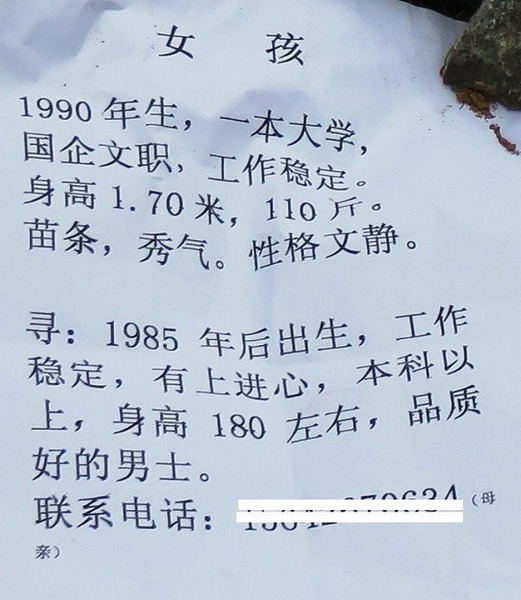 女 孩
1990 年生，一本大学，
国企文职，工作稳定。
身高 1.70 米，110 斤。
苗条，秀气。性格文静。
寻：1985 年后出生，工作
稳定，有上进心，本科以
上，身高 180 左右，品质
好的男士。
联系电话：（母
亲）